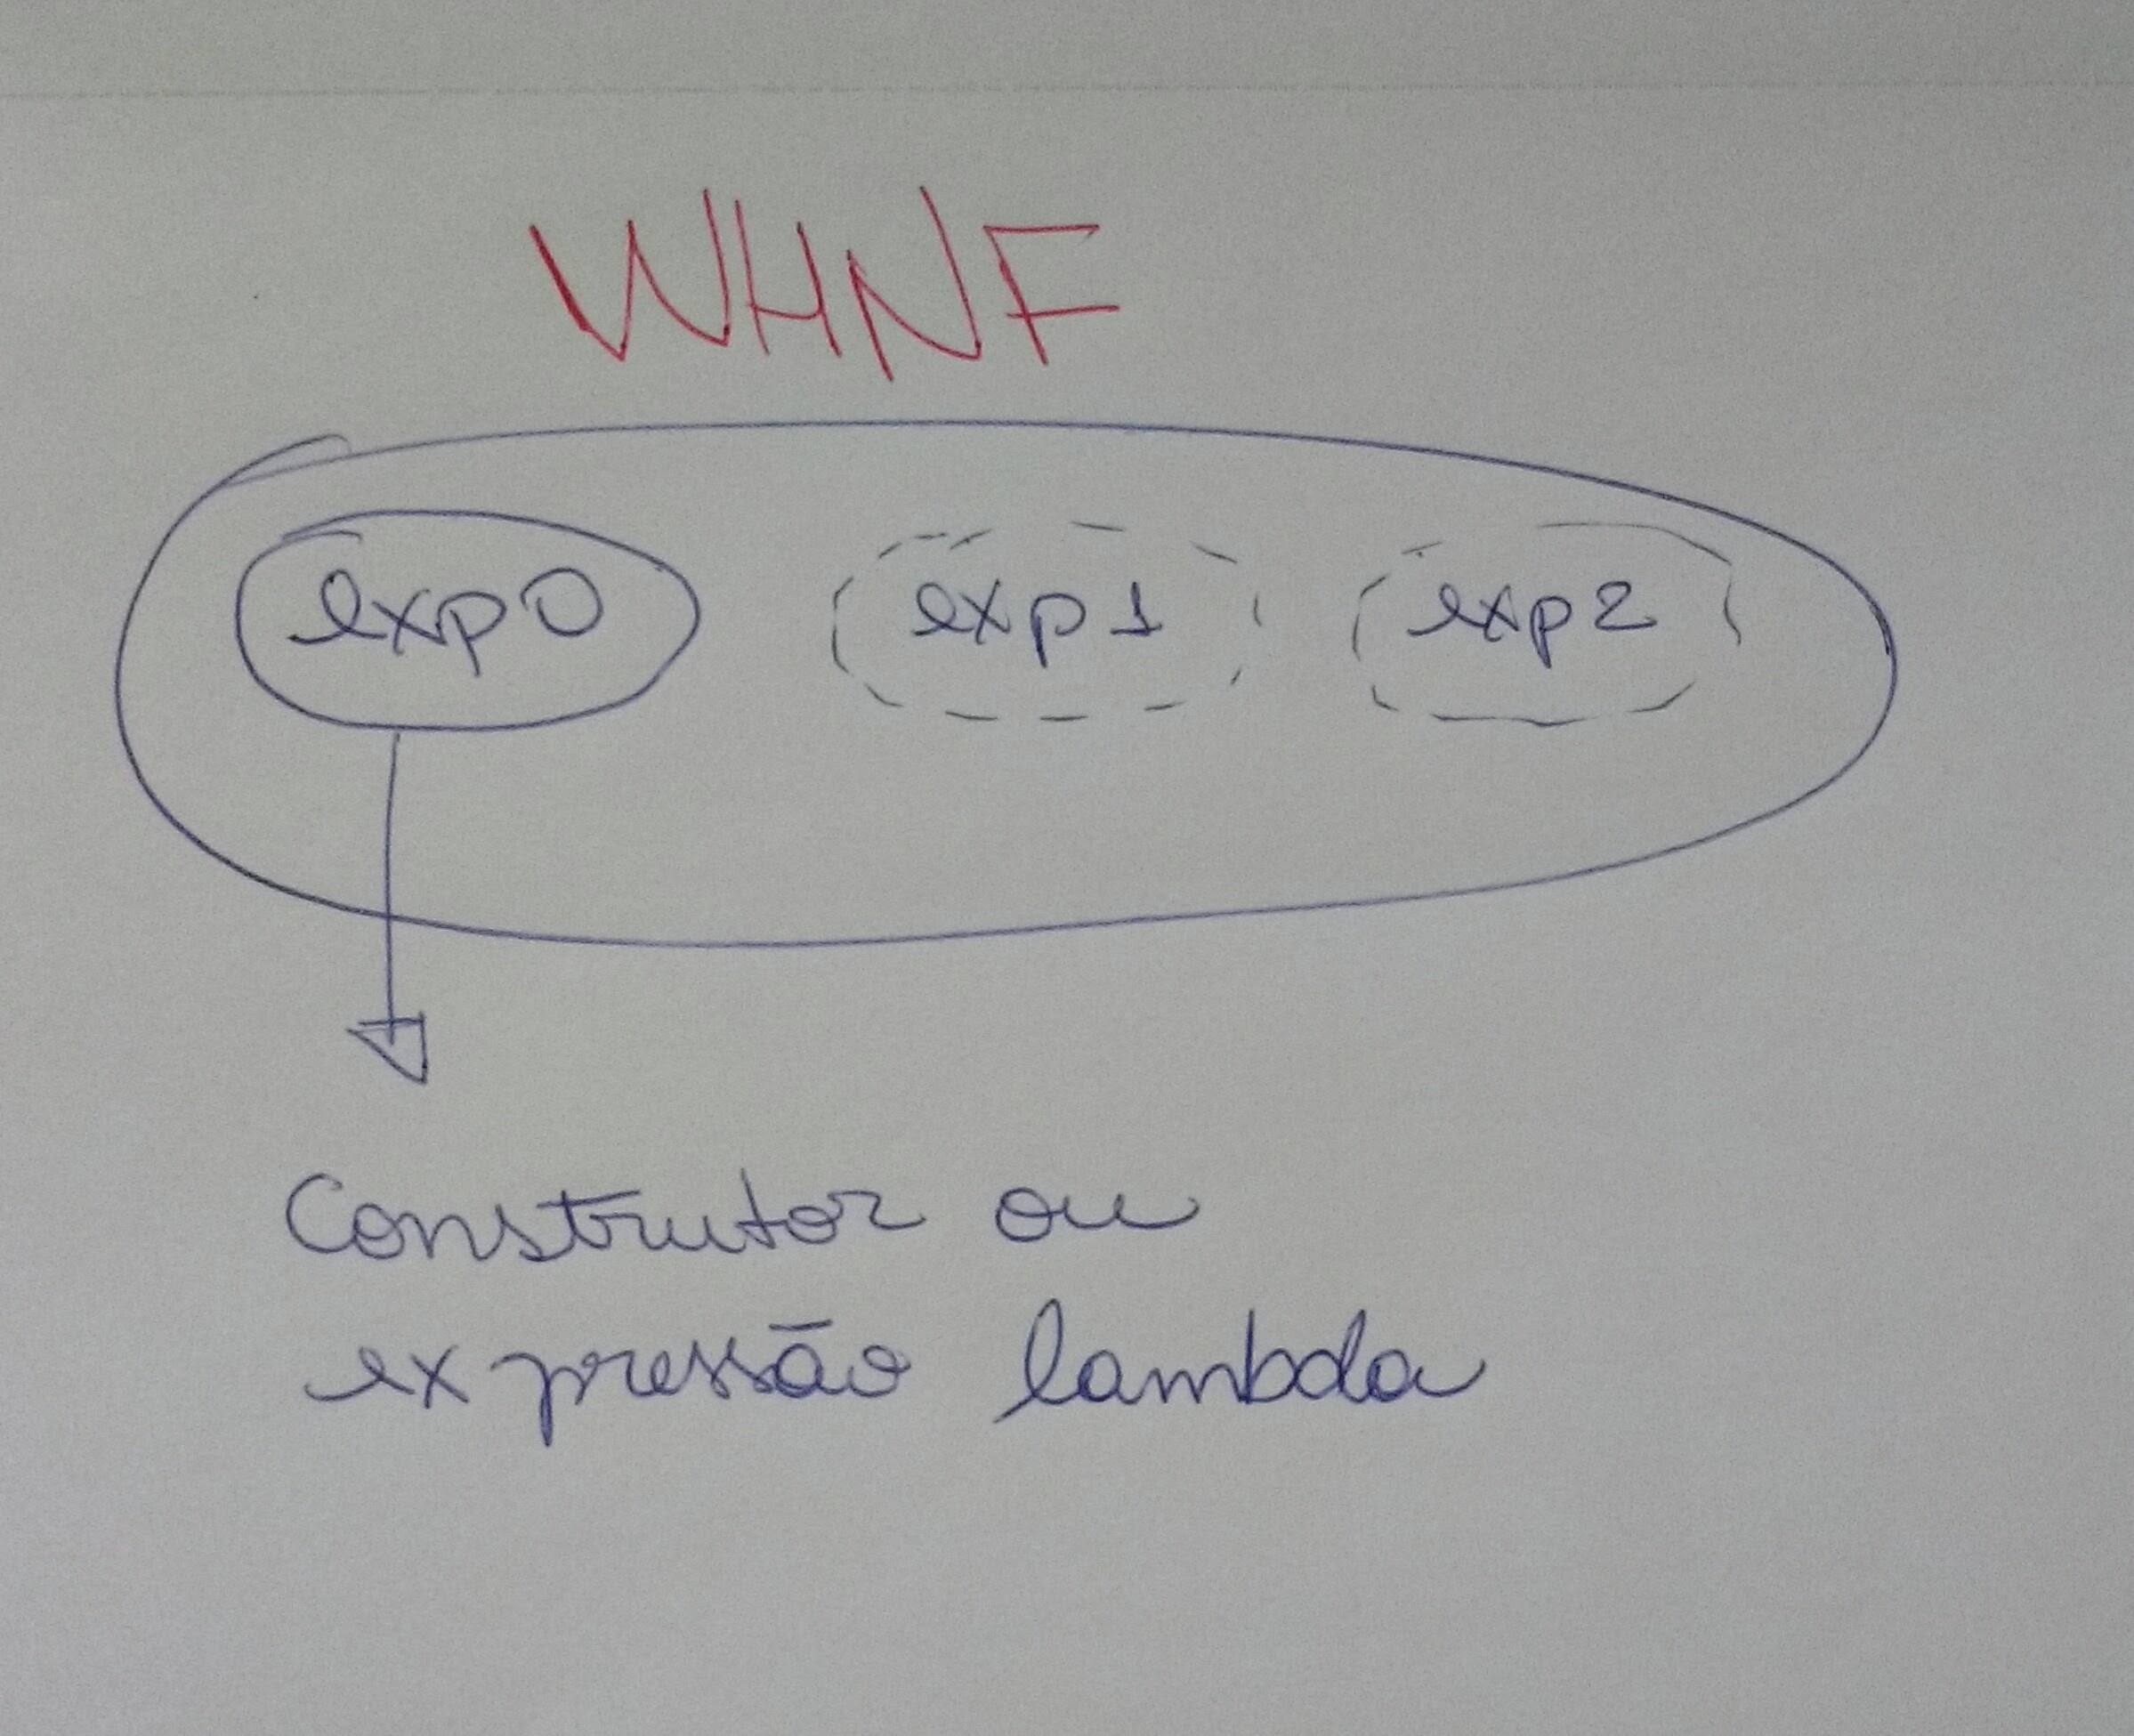 WHNF
exp0 exp1 exp2
Construtor ou
expressão lambda